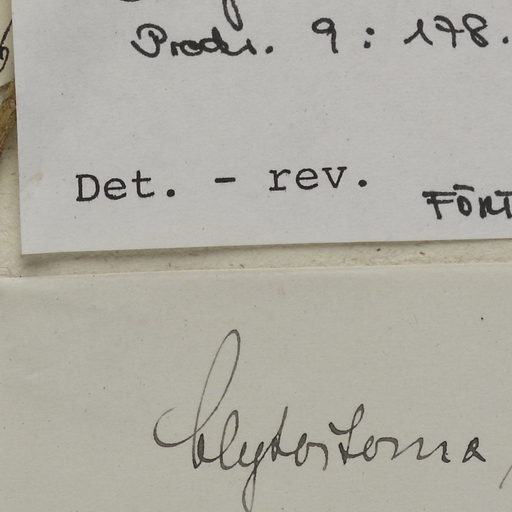 Prodr. 9 : 178.
Det. - rev.
Clytostoma